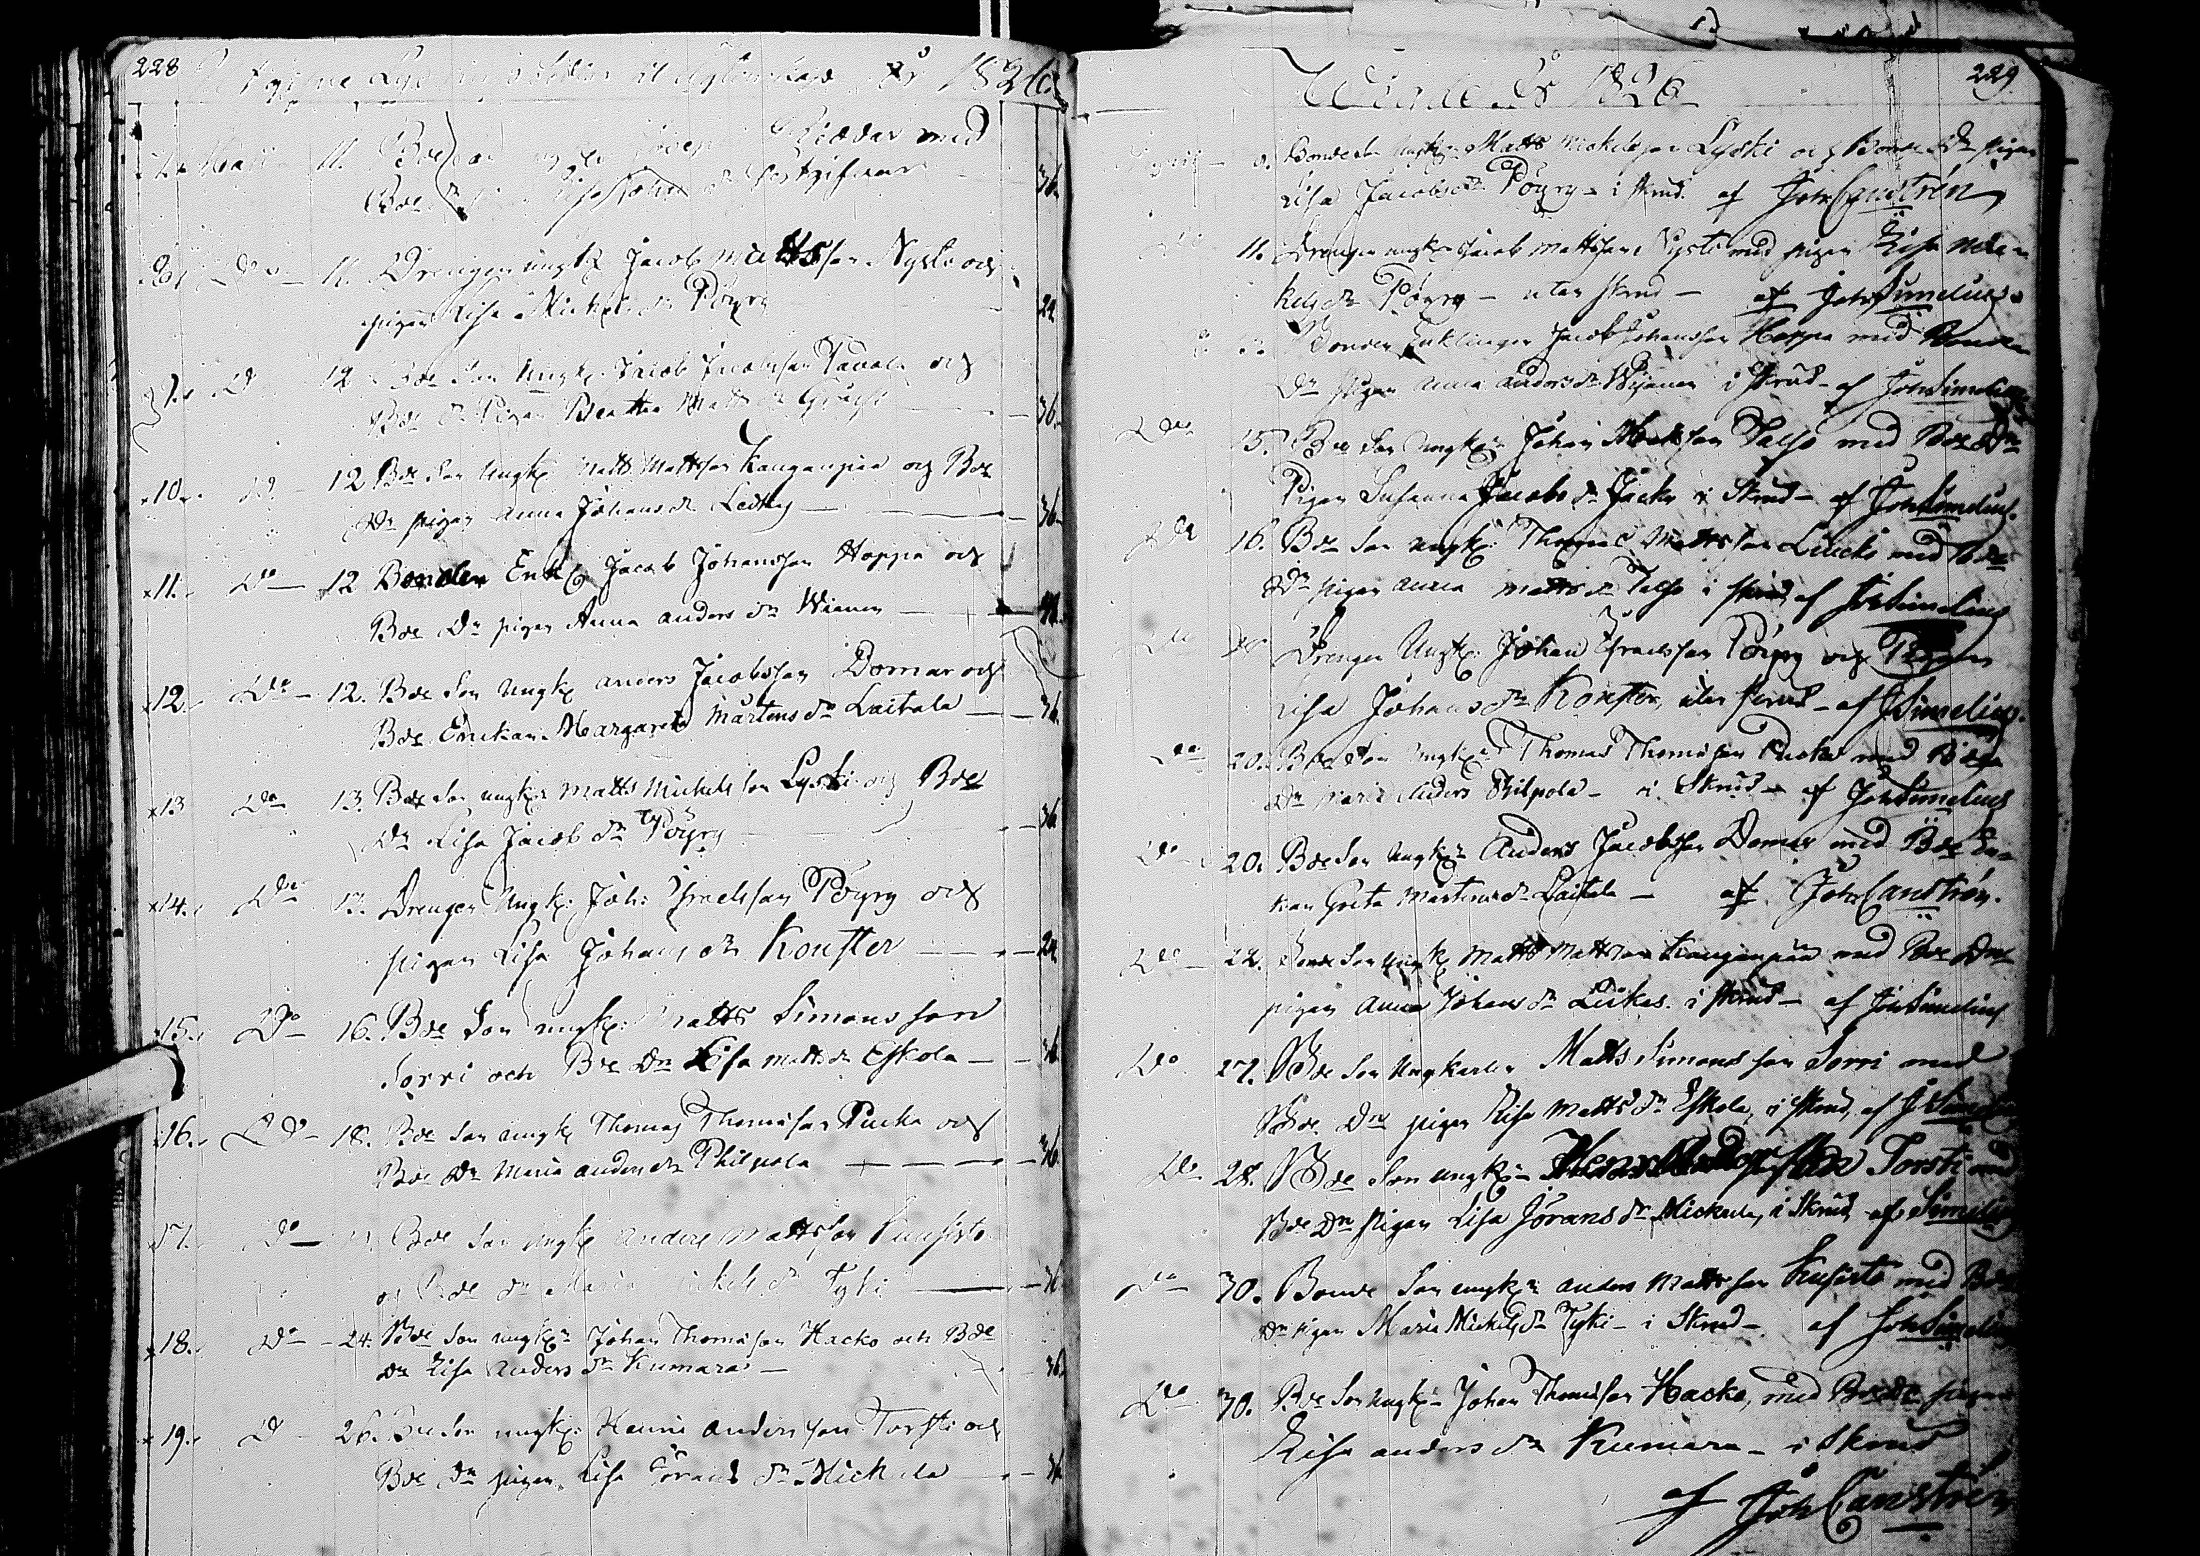 228
År 1826
11. Bde
Bde
36.
Do 11. Drengen ungk Jacob Mattsson Nysto och
pigan Lisa Mickelsdr Pöyry 24
9. Do 12 Bde Son Ungk: Jacob Jacobsson Tavala och
Bde Dr Pigan Beatha Matts dr 36.
10. Do 12 Bde Son Ungk: Matts Mattsson Kangaspää och Bde
Dr pigan Anna Johans dr 36
11. Do 12 Bonden Enkl Jacob Johansson Hoppa och
Bde Dr pigan Anna anders dr Wianen
12. Do 12. Bde Son Ungk anders Jacobsson Domar och
Bde Enckan Margareta Mårtens dr Laitala 36.
13 Do 13. Bde Son ungk: Matts Mickelsson Lyski och Bde
Dr Lisa Jacobs dr Pöyry 36
14. Do 13. Drengen Ungk: Joh: Israelsson Pöyry och
pigan Lisa Johans dr Konster 24
15. Do 16. Bde Son ungk: Matts Simonsson
Sorri och Bde Dr Lisa Matts dr Eskola 36
16. Do 18. Bde Son ungk Thomas Thomasson Pucka och
Bde Dr Maria anders dr Philpola 36
17. Do Bde Son Ungk anders Mattsson Kuusisto
och Bde dr Maria Mickels dr Tyki 36
18. Do 24. Bde Son ungk: Johan Thomasson Hacko och Bde
Dr Lisa Anders dr Kumara 36
19. Do 26. Bde Son ungk: Henric Andersson Torsti och
Bde Dr pigan Lisa Görans dr Mickula 36
229
År 1826
Bonde Son Ungk: Matts Mickelsson Lyski och Bonde Dr pigan
Lisa Jacobsdr Pöyry i skrud. af Joh Canstrén
11. Drengen ungk: Jacob Mattsson Nysti med pigan Lisa Mic
kels dr Pöyry utan skrud af Joh Simelius
Bonden Enklingen Jacob Johansson Hoppa med Bonde
Dr pigan Anna Anders dr Wijanen i skrud af Joh Simelius
Do 15. Bde Son Ungk: Johan Matsson Talso med Bde Dr
Pigan Susanna Jacobs dr Jacko i Skrud af Joh Simelius.
Do 16. Bde Son Ungk: Thomas Mattsson Luucki med Bde
Dr pigan Anna Matts dr Talso i skrud af Joh Simelius
Do Drengen Ungk: Johan Israelsson Pöyry och Pigan
Lisa Johans dr Konster, utan skrud af J Simelius.
Do 20. Bde Son Ungk: Thomas Thomasson Pucka med Bde
Dr Maria Anders Philpola i Skrud af Joh Simelius
Do 20. Bde Son Ungk: Anders Jacobsson Domar med Bde En-
kan Greta Mårtens dr Laitala af Joh Canstrén.
Do 22. Bonde Son Ungk Matts Mattsson Kangaspää med Bde Dr
pigan Anna Johans dr i skrud af Joh Simelius
Do 27. Bde Son Ungkarlen Matts Simonsson Sorri med
Bde Dr pigan Lisa Matts dr Eskola, i skrud, af J Simelius
Do 28. Bde Son ungk: Henr Andersson Torsti med
Bde Dr Pigan Lisa Jörans dr Mickula, i Skrud af Simelius
Do 30. Bonde Son ungk: Anders Mattsson Kusisto med Bde
Dr pigan Maria Mickels dr Tyki i Skrud af Joh Simelius
Do 30. Bde Son Ungk: Johan Thomasson Hacko, med Bde Dr pigan
Lisa anders dr Kumara i Skrud
af Joh Canstrén